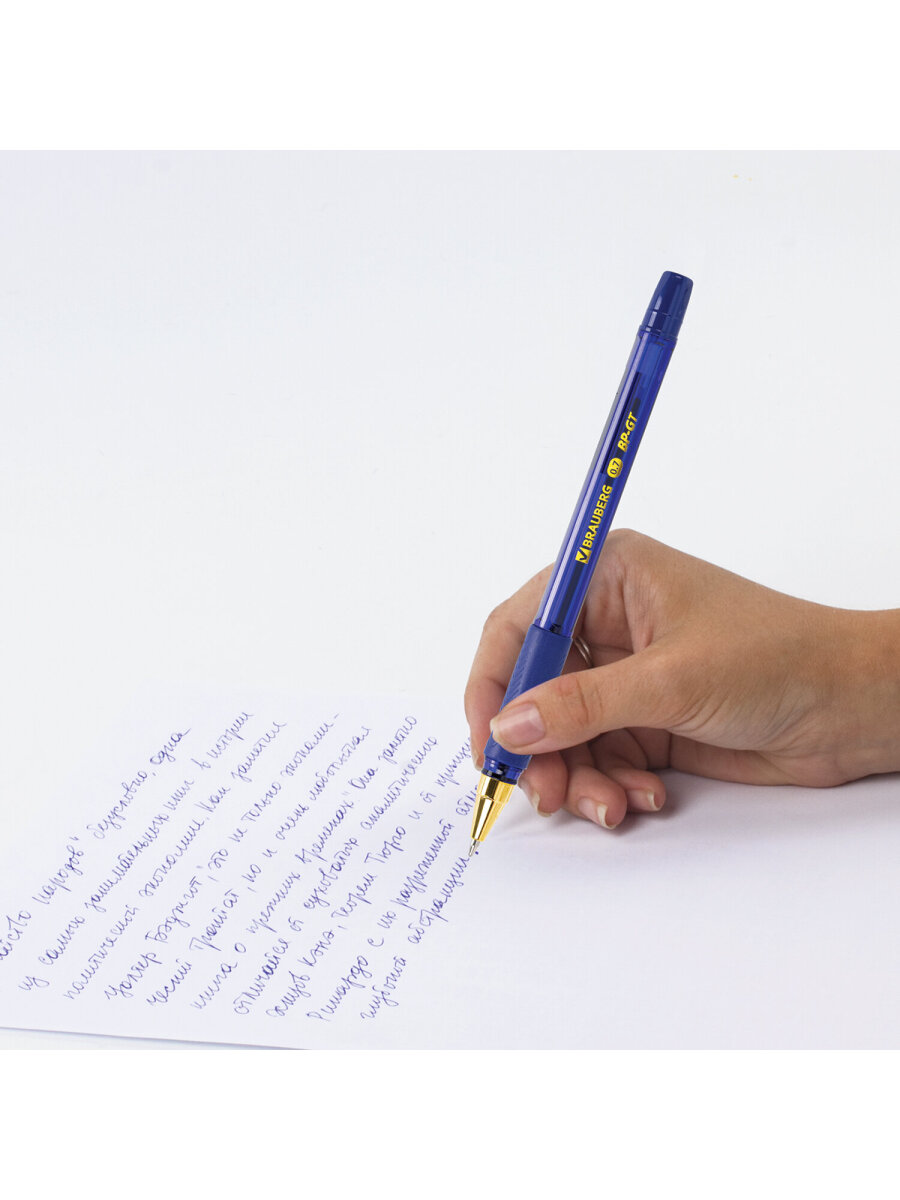 BRAUBERG 0.7 BP-GT
народов" безусловно, одна
из самых занимательных книг в истории
политической экономии. Как заметил
Уолтер Бэджгот, "это не только экономи-
ческий трактат, но и очень любопытная
книга о прежних временах". Она заметно
отличается от суховатых аналитических
Кэнэ, Теорем Тюрго и от
Рикардо с их разреженной
глубокой абстракции